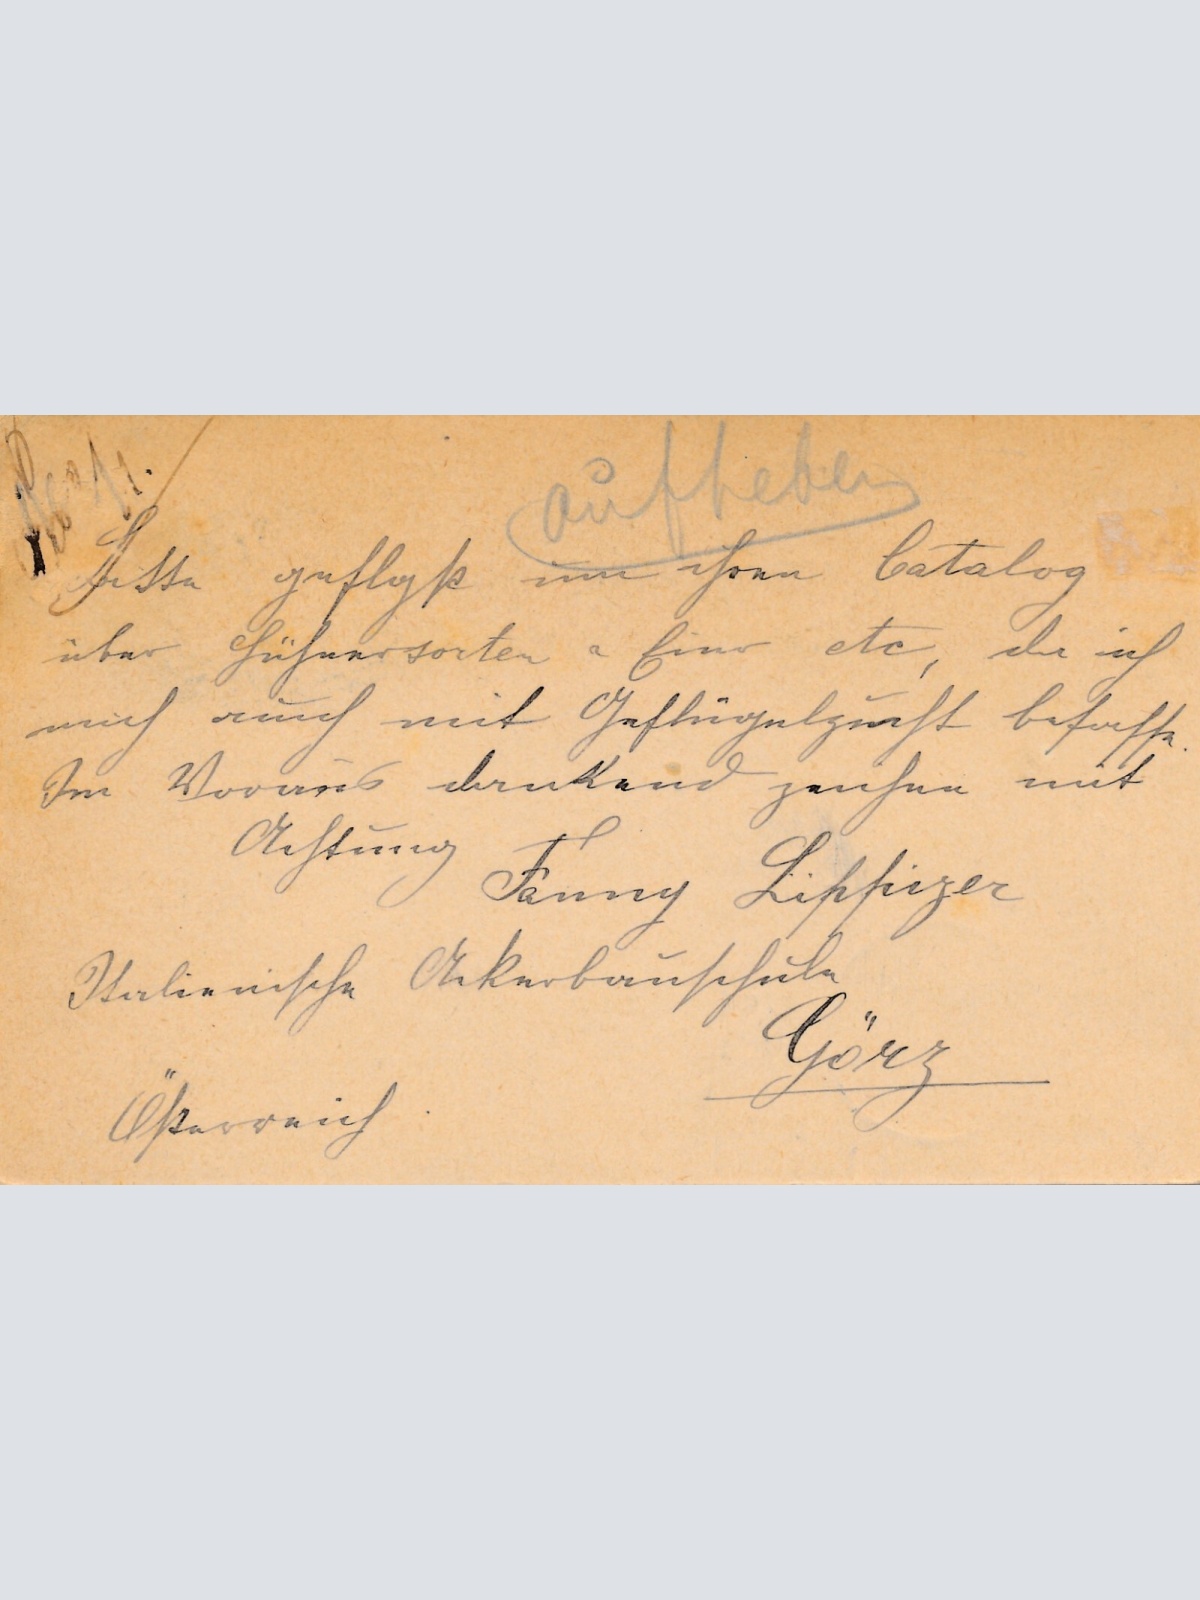 aufheben
Bitte gefligst um ihren Catalog
über Hühnersorten u Eier etc, da ich
mich auch mit Geflügelzucht befasse.
Im Voraus dankend zeichne mit
Achtung
Fanny Lippizer
Italienische Ackerbauschule
Görz
Österreich